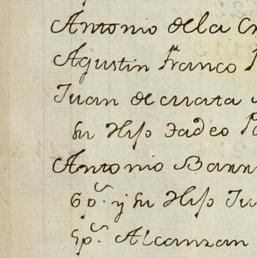 Antonio de la Cr
Agustin Franco P
Juan de
su Hijo Tadeo Pa
Antonio Barr
6 pˢ. y su Hijo Ju
5 pˢ. Alcanzan